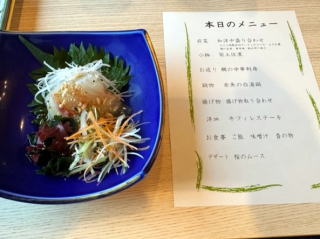 本日のメニュー
前菜 和洋中盛り合わせ
小鉢
お造り 鯛の中華刺身
鍋物 金魚の白湯鍋
揚げ物 揚げ物取り合わせ
洋皿 牛フィレステーキ
お食事 ご飯 味噌汁 香の物
デザート 桜のムース